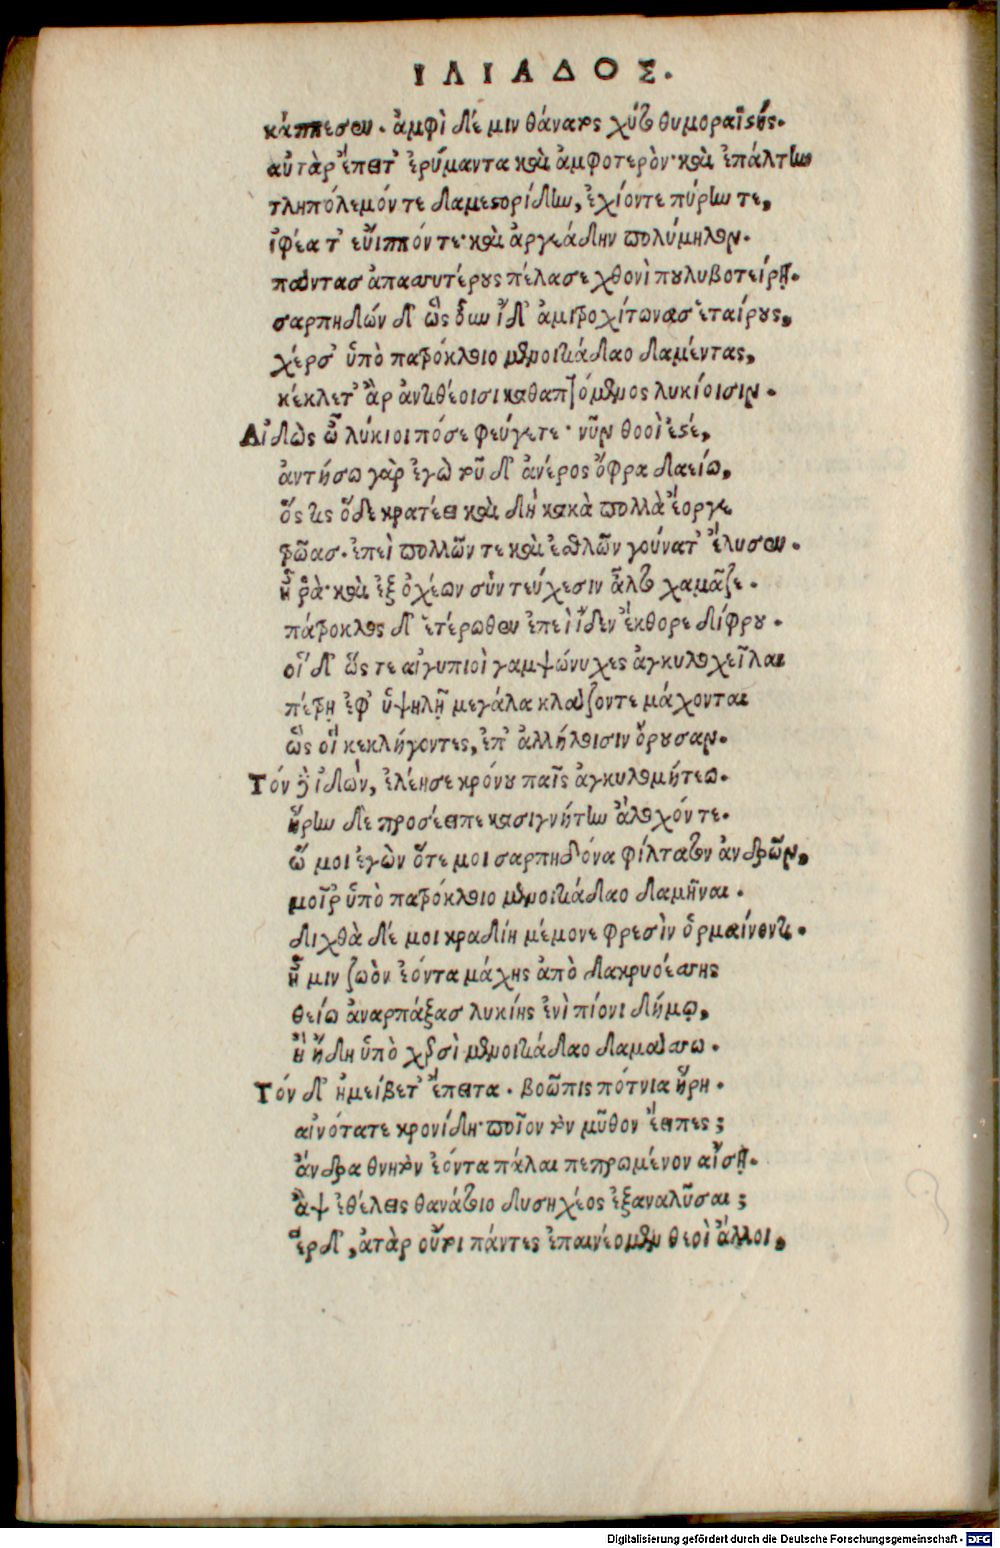 ΙΛΙΑΔΟΣ.
κάππεσεν. ἀμφὶ δέ μιν θάνατος χύτο θυμοραϊστής.
αὐτὰρ ἔπειτ' ἐρύμαντα καὶ ἀμφοτερὸν· καὶ ἐπάλτην
τληπόλεμόν τε δαμαστορίδην, ἐχίον τε πύρην τε,
ἰφέα τ' εὔιππόν τε· καὶ ἀργεάδην πολύμηλον.
πάντασ ἀπασσυτέρους πέλασε χθονὶ πουλυβοτείρῃ.
σαρπηδών δ' ὡς οὖν ἴδ' ἀμιτροχίτωνασ ἑταίρους,
χέρσ' ὑπὸ πατρόκλοιο μενοιτιάδαο δαμέντας,
κέκλετ' ἂρ ἀντιθέοισι καθαπτόμενος λυκίοισιν.
Αἰδὼς ὦ λύκιοι πόσε φεύγετε· νῦν θοοὶ ἐστέ,
ἀντήσω γὰρ ἐγὼ τοῦ δ' ἀνέρος ὄφρα δαείω,
ὅς τις ὅδε κρατέει καὶ δὴ κακὰ πολλὰ ἔοργε
τρῶας. ἐπεὶ πολλῶν τε καὶ ἐσθλῶν γούνατ' ἔλυσεν.
ἦ ῥά· καὶ ἐξ ὀχέων σὺν τεύχεσιν ἆλτο χαμᾶζε.
πάτροκλος δ' ἑτέρωθεν ἐπεὶ ἴδεν ἔκθορε δίφρου.
οἵ δ' ὥς τε αἰγυπιοὶ γαμψώνυχες ἀγκυλοχεῖλαι
πέτρῃ ἐφ' ὑψηλῇ μεγάλα κλάζοντε μάχονται
ὣς οἵ κεκλήγοντες, ἐπ' ἀλλήλοισιν ὄρουσαν.
Τόν δὲ ἰδὼν, ἐλέησε κρόνου παῖς ἀγκυλομήτεω.
ἥρην δε προσέειπε κασιγνήτην ἄλοχόν τε.
ὤ μοι ἐγὼν ὅτε μοι σαρπηδόνα φίλτατον ἀνδρῶν,
μοῖρ' ὑπὸ πατρόκλοιο μενοιτιάδαο δαμῆναι.
διχθὰ δέ μοι κραδίη μέμονε φρεσὶν ὁρμαίνοντι.
ἤ μιν ζωὸν ἐόντα μάχης ἀπὸ δακρυοέσσης
θείω ἀναρπάξασ λυκίης ἐνὶ πίονι δήμῳ,
ἢ ἤδη ὑπὸ χερσὶ μενοιτιάδαο δαμάσσω.
Τόν δ' ἠμείβετ' ἔπειτα. βοῶπις πότνια ἥρη.
αἰνότατε κρονίδη· ποῖον τὸν μῦθον ἔειπες;
ἄνδρα θνητὸν ἐόντα πάλαι πεπρωμένον αἴσῃ.
ἂψ ἐθέλεις θανάτοιο δυσηχέος ἐξαναλῦσαι;
ἔρδ', ἀτὰρ οὔτοι πάντες ἐπαινέομεν θεοὶ ἄλλοι,
Digitalisierung gefördert durch die Deutsche Forschungsgemeinschaft - DFG